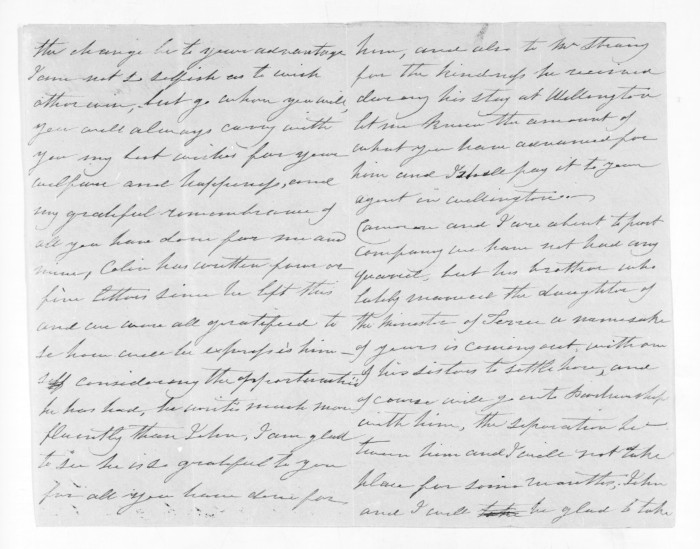 the change be to your advantage
I am not so selfish as to wish
otherwise, but go when you will,
you will always carry with
you my best wishes for your
welfare and happiness, and
my grateful remembrance of
all you have done for me and
mine, Colin has written four or
five letters since he left this
and we were all gratified to
se how he expresses him-
self considering the opportunities
he has had, he writes much more
fluently than John, I am glad
to see he is so grateful to you
for all you have done for
him, and also to Mr Strang
for the kindness he received
during his stay at Wellington
let me know the amount of
what you have advanced for
him and I shall pay it to your
agent in wellington.
Cameron and I are about to part
company we have not had any
quarrel, but his brother who
lately married the daughter of
the Minister of a namesake
of yours is coming out, with one
of his sisters to settle here, and
of course will go into Partnership
with him, the separation be
tween him and I will not take
place for some months, John
and I will be glad to take